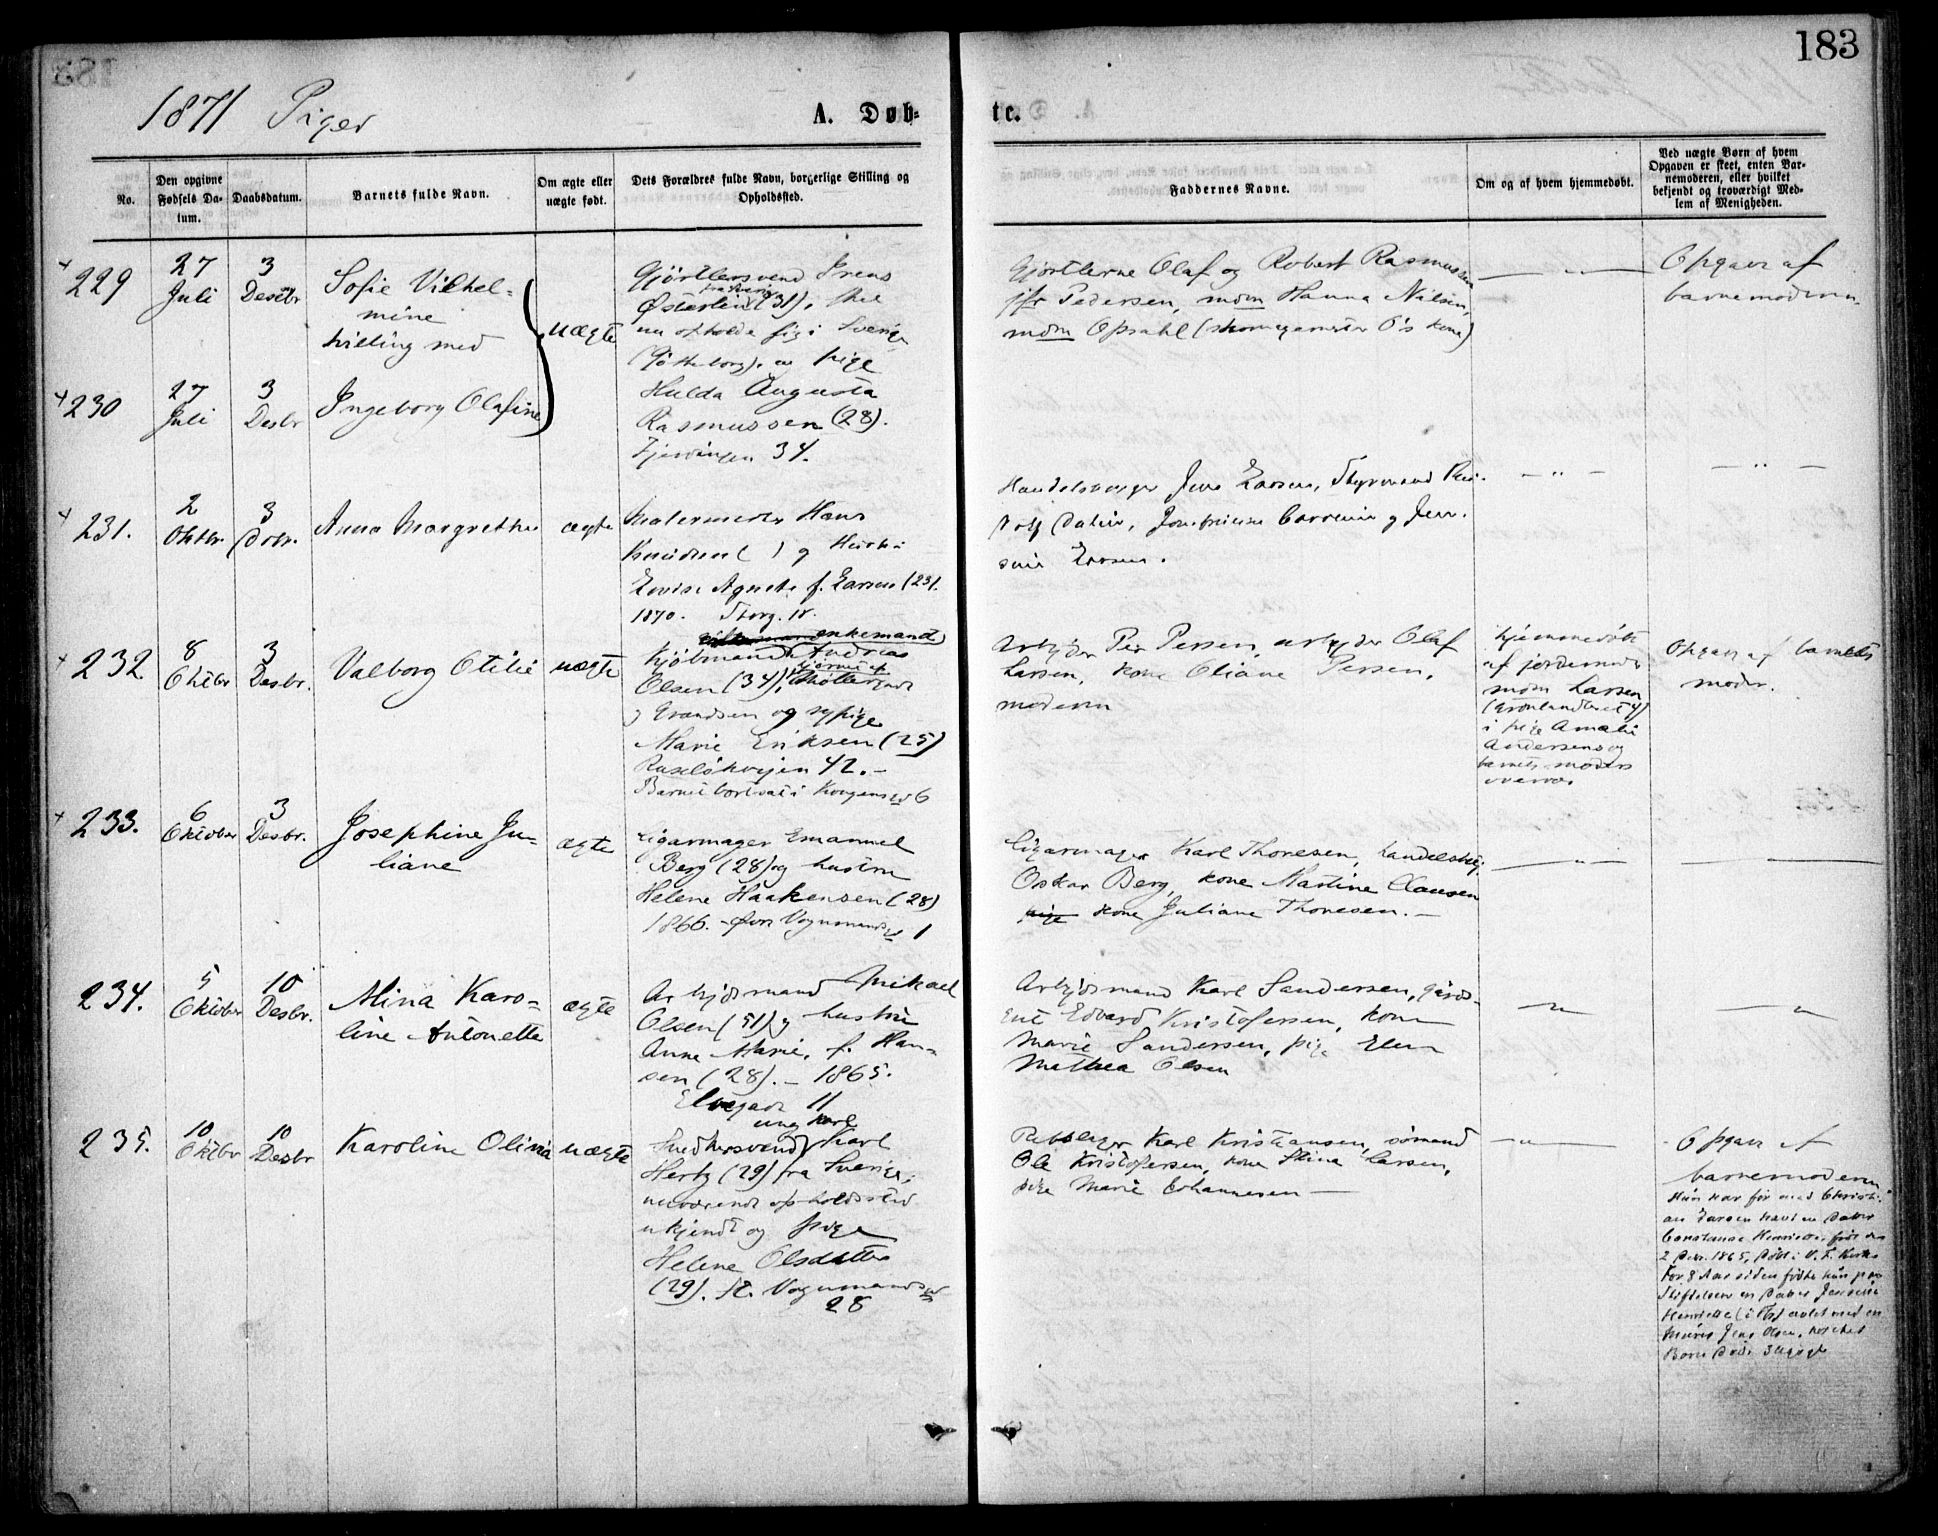 183
1871 Piger
A. Døb-
te.
No.
Den opgivne Fødsels Da-tum.
Daabsdatum.
Barnets fulde Navn.
Om ægte eller uægte født.
Dets Forældres fulde Navn, borgerlige Stilling og Opholdssted.
Faddernes Navne.
Om og af hvem hjemmedøbt.
Ved uægte Børn af hvem Opgaven er skeet, enten Bar-nemoderen, eller hvilket bekjendt og troværdigt Med-lem af Menigheden.
229
27
Juli
3
Desbr
Sofie Vilhel-
mine
tvilling med
uægte
Gjørtlersvend
fra Sverige
Østerlin (31), skal
nu opholde sig i Sverige
(Götheborg), og pige
Hulda Augusta
Rasmussen (28).
Fjerdingen 34.
Gjørtlerne Olaf og Robert Rasmussen
jfr Pedersen, mdm Hanna Nilsen,
mdm Opsahl (skomagermester O's kone)
— " —
Opgave af
barnemoderen
230
27
Juli
3
Desbr
Ingeborg Olafine
231.
2
Oktbr.
3
Dcbr.
Anna Margrethe
ægte
Malermester Hans
Knudsen ( ) og Hustru
Lovise Agnete f. Larsen (23).
1870. Storg. 18.
Handelsborger Jens Larsen, Styrmand
Josefine og Jen-
sine Larsen.
— " —
— " —
232.
8
Oktbr
3
Desbr.
Valborg Otilie
uægte
enkemand
Kjøbmand Andreas
Olsen (34),
og sypige
Marie Eriksen (25)
Ruseløkvejen 42. —
Barnet bortsat i Kongens gd 6
Arbejder Per Persen, arbejder Olaf
Larsen, kone Oliane Persen,
moderen
hjemmedøbt
af jordemoder
mdm Larsen
(Grønlandleret 4)
i pige Amalie
Andersens og
barnets moders
overvær
Opgave af barnets
moder.
233.
6
Oktober
3
Desbr.
Josephine Ju-
liane
ægte
Cigarmager Emanuel
Berg (28) og hustru
Helene Haakensen (28)
1866. — Øvre Vognmandsgd 1
Cigarmager Karl Thoresen, handelsbetj.
Oskar Berg, kone Martine Clausen
pige kone Juliane Thoresen. —
— " —
—
234.
5
Oktober
10
Desbr.
Mina Karo-
line Antonette
ægte
Arbejdsmand Mikael
Olsen (51) og hustru
Anne Marie, f. Han-
sen (28). — 1865.
Elvegade 11
Arbejdsmand Karl Sandersen, gaards-
Edvard Kristofersen, kone
Marie Sandersen, pige Elen
Mathea Olsen
— " —
— " —
235.
10
Oktbr
10
Desbr
Karoline Olivia
uægte
ung karl
Snedkersvend Karl
Hertz (29) fra Sverige;
nuværende opholdssted
ukjendt og pige
Helene Olsdatter
(29). st. Vognmandsgd
28
Rebslager Karl Kristiansen, sømand
Ole Kristofersen, kone Stina Larsen,
pige Marie Johannesen —
— " —
Opgave af
barnemoderen
Hun har før med Christi-
an Larsen havt en Datter
Constanse Henriette, født den
2 Debr. 1865, døbt i V. F. Kirke
For 8 Aar siden fødte hun paa
Stiftelsen en Datter
Henriette avlet med en
Murer Jens Olsen,
Børn døde